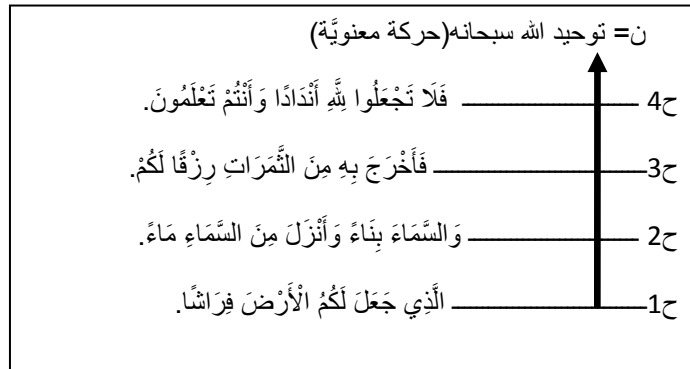 ن= توحيد الله سبحانه(حركة معنويَّة)
ح4 ــــــــــــــــــــ فَلَا تَجْعَلُوا لِلَّهِ أَنْدَادًا وَأَنْتُمْ تَعْلَمُونَ.
ح3ــــــــــــــــــــ فَأَخْرَجَ بِهِ مِنَ الثَّمَرَاتِ رِزْقًا لَكُمْ.
ح2 ــــــــــــــــــــ وَالسَّمَاءَ بِنَاءً وَأَنْزَلَ مِنَ السَّمَاءِ مَاءً.
ح1ــــــــــــــــــــ الَّذِي جَعَلَ لَكُمُ الْأَرْضَ فِرَاشًا.